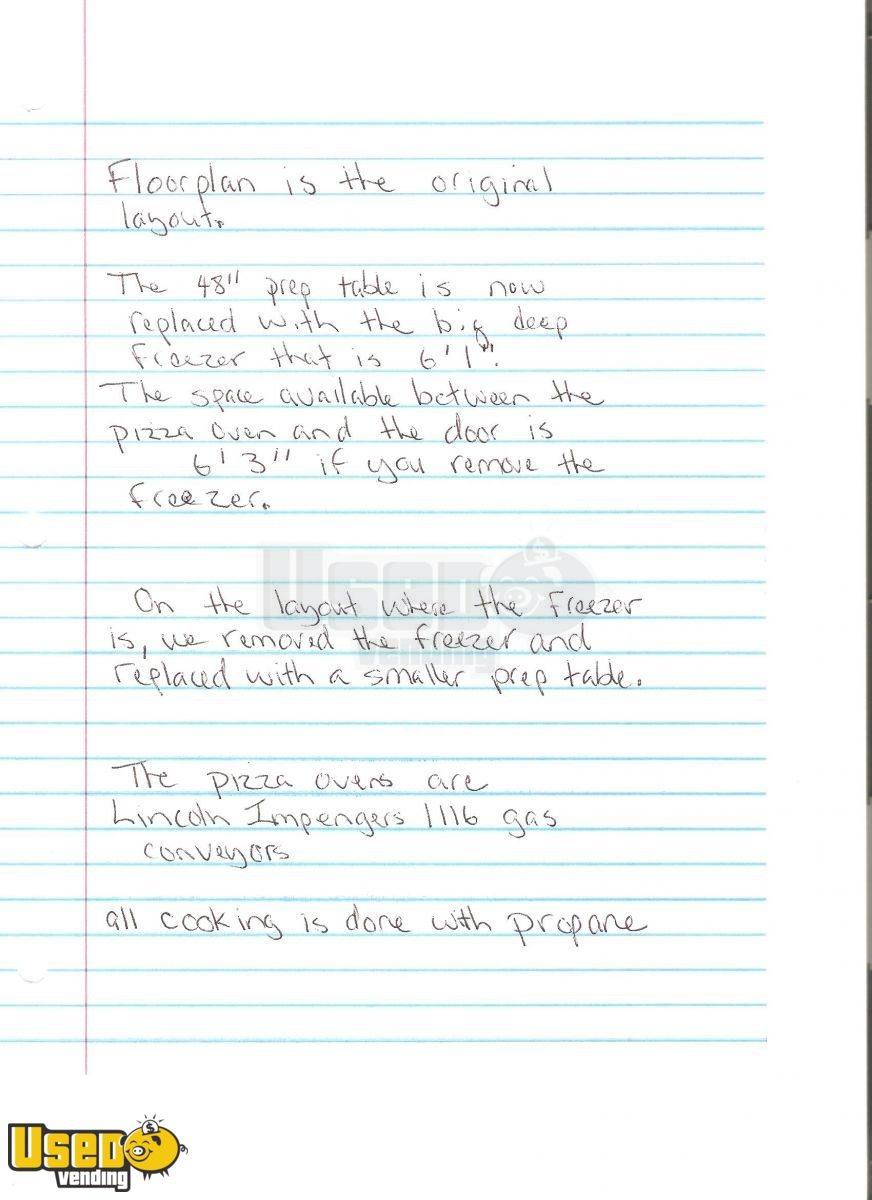 Floorplan is the original
layout.
The 48" prep table is now
replaced with the big deep
freezer that is 6'1".
The space available between the
pizza oven and the door is
6'3" if you remove the
freezer.
On the layout where the freezer
is, we removed the freezer and
replaced with a smaller prep table.
The pizza ovens are
Lincoln Impengers 1116 gas
conveyors
all cooking is done with propane
USED
vending
USED
vending